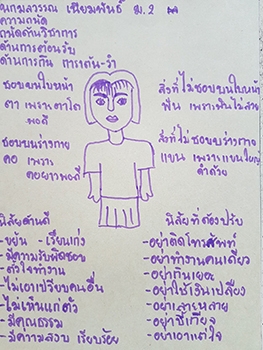 นกมลวรรณ เนียมพันธ์ ม.2
ความถนัด
ถนัดด้านวิชาการ
ด้านการต้อนรับ
ด้านการกิน
ชอบบนใบหน้า
ตา เพราะตาโต
พอดี
สิ่งที่ไม่ชอบบนใบหน้า
ฟัน เพราะฟันไม่สวย
ชอบบนร่างกาย
คอ เพราะ
คอยาวพอดี
สิ่งที่ไม่ชอบบนร่างกาย
แขน เพราะแขนใหญ่
ดำด้วย
นิสัยด้านดี
-ขยัน -เรียนเก่ง
-มีความรับผิดชอบ
-ตั้งใจทำงาน
-ไม่เอาเปรียบคนอื่น
-ไม่เห็นแก่ตัว
-มีคุณธรรม
-มีความสงบ เรียบร้อย
นิสัยที่ต้องปรับ
-อย่าติดโทรศัพท์
-อย่าทำงานคนเดียว
-อย่ากินเยอะ
-อย่าใช้เงินเปลือง
-อย่าสายหลาย
-อย่าขี้เกียจ
-อย่าเอาแต่ใจ